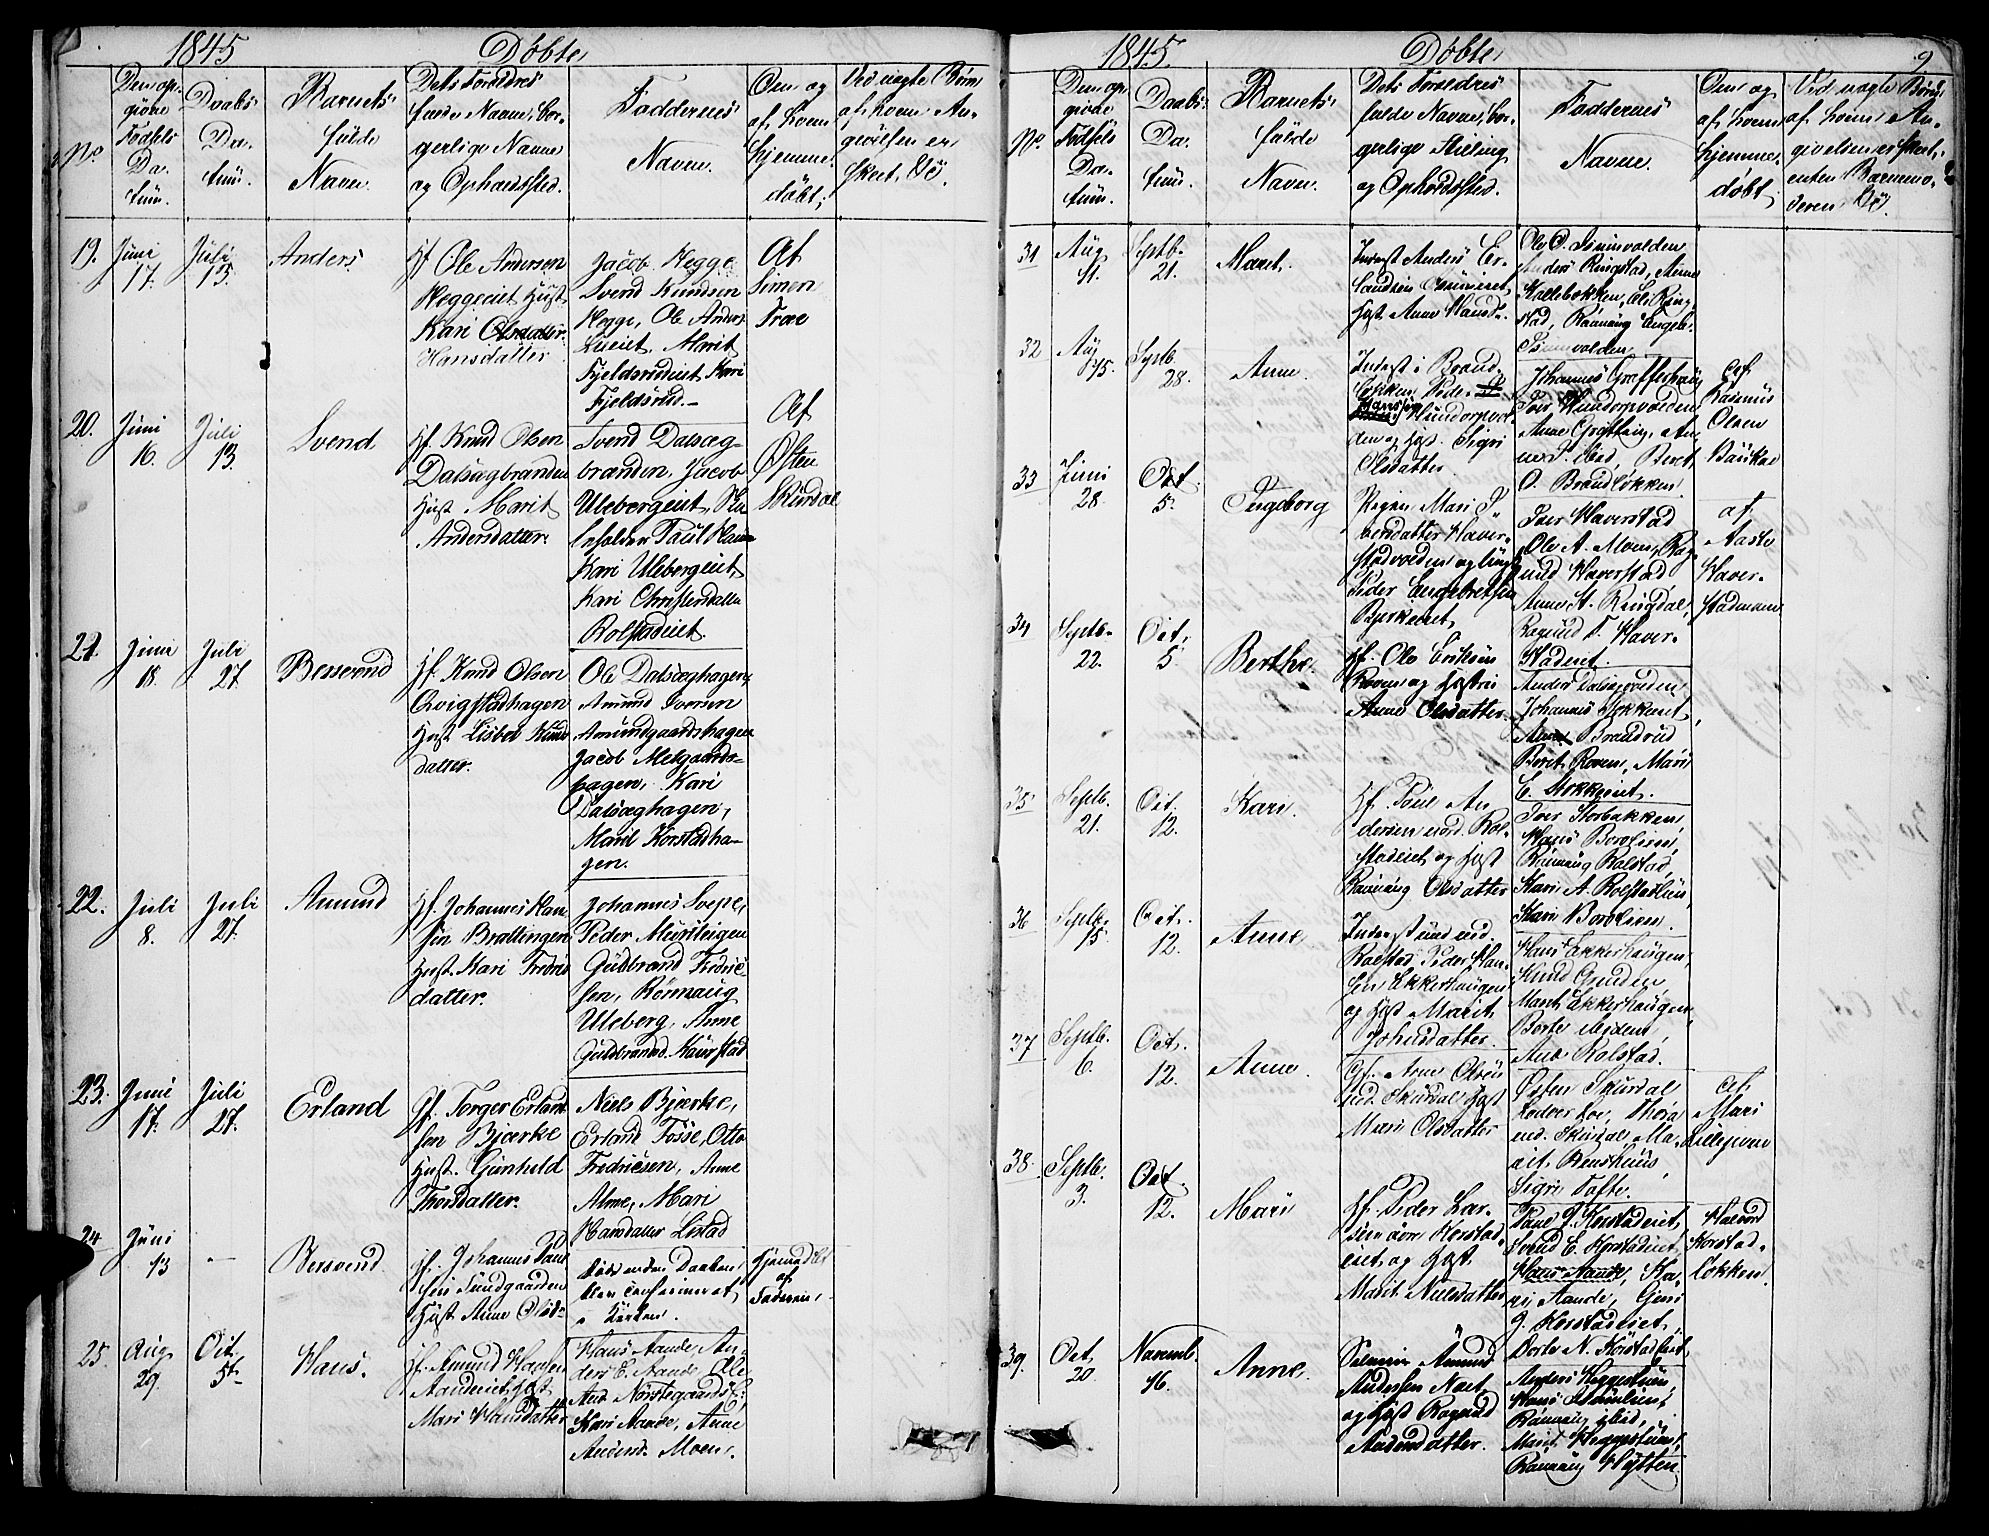 1845
Døbte,
No
Den op-
givne
Fødsels
Da-
tum.
Daabs
Da-
tum.
Barnets
fulde
Navn.
Dets Forældres
fulde Navne, bor-
gerlige Navne
og Opholdssted.
Faddernes
Navne.
Om og
af hvem
hjemme-
døbt;
Ved uægte Børn
af hvem An-
givelsen er
skeet,
19.
Juni
17.
Juli
13.
Anders
Hf Ole Andersen
Heggeeiet Hust.
Kari
Hansdatter
Jacob Hegge
Svend Knudsen
Hegge, Ole Anders.
Marit
Fjeldsrudeiet Kari
Fjeldsrud.-
Af
Simen
Fræe
20.
Juni
16.
Juli
13.
Svend
Hf. Knud Olsen
Dalsægbranden
Hust Marit
Andersdatter.
Svend Dalsæg-
branden, Jacob
Ulebergeiet,
Poul
Kari Ulebergeiet
Kari Christensdatter
Rolstadeiet
Af
Østen
Skurdal
21.
Juni
18.
Juli
27.
Bersvend
Hf. Knud Olsen
Qvigstadhagen
Hust Lisbet Knuds
datter.
Ole Dalsæghagen,
Amund Iversen
Amundgaardshagen
Jacob Melgaards-
hagen, Kari
Dalsæghagen,
Marit Korstadha-
gen.
22.
Juli
8.
Juli
27.
Amund
Hf. Johannes Han
sen Brattingen
Hust. Kari Fredrics
datter.
Johannes Svepe,
Peder Muristuen
Gudbrand Fredric-
sen, Rønnaug
Uleberg, Anne
Gudbrandsd. Kaurstad
23.
Juni
17.
Juli
27.
Erland
Hf. Torger Erland
sen Bjærke
Hust. Gunhild
Thorsdatter.
Niels Bjærke,
Erland Fosse, Otto
Fredricsen, Anne
Alme, Mari
Hansdatter Listad
24
Juni
13
-
Bersvend.
Hf. Johannes Poul
sen Sundgaarden
Hust Anne Olsd-
døde inden Daaben
blev confirmeret
i Kirken.
Hjemmedøbt
af
Faderen.
25.
Aug
29.
Oct.
5te
Hans.
Hf. Amund Hansen
Aandeeiet, Hust
Mari Hansdatter
Hans Aande, An-
ders E. Aande, Ole
And. Nordgaards
Kari Aande, Anne
Andersd. Moen.
1845
Døbte
9
No.
Den op
givne
Fødsels
Da-
tum.
Daabs
Da-
tum.
Barnets
fulde
Navn.
Dets Forældres
fulde Navne, bor-
gerlige Stilling
og Opholdssted.
Faddernes
Navne.
Om og
af hvem
hjemme-
døbt
Ved uægte Børn
af hvem An-
givelsen er skeet,
enten Barnemo-
deren
31
Aug
11.
Septb.
21.
Marit.
Inderst Anders Er-
landsen
Hust Anne Hansd.
Anders Ringstad, Anne
Kallebækken,
stad, Rønnaug Engeb.
32
Aug
15.
Septb.
28.
Anne.
Inderst i Brand-
løkken Peder
Hansen Hundorpvol-
den og Hust. Sigri
Olsdatter
Johannes Græfferhaug
Iver Hundorpvolden
Anne Grytting,
Beret
O. Brandløkken.
af
Rasmus
Olsen
33
Juni
28.
Oct.
5.
Ingeborg
Pigen Mari I-
versdatter Haver-
stadvolden og Ungk.
Peder Engebretsen
Bjerkeeiet
Iver Haverstad
Ole A. Moen, Rag
nild Haverstad
Anne A. Ringdal,
Ragnild T. Haver-
stadeiet.
af
Aaste
Haver-
stadmoen
34
Septb.
22.
Oct.
5.
Berthe.
Hf. Ole Eriksen
Roven og Hustru
Anne Olsdatter.
Anders Dalsegvolden,
Johannes Stokkeeiet,
Anne Brandrud
Beret Roven, Mari
E. Stokkeeiet.
35
Septb.
21.
Oct.
12.
Kari.
Hf. Poul An
dersen nord. Rol-
stadeiet og Hust
Rønnaug Olsdatter
Iver Storbækken,
Hans Borolien,
Rønnaug Rolstad,
Kari A. Rolstadeiet,
Kari Borolien.
36
Septb.
15.
Oct.
12.
Anne
Inderst und. ned.
Rolstad Peder Han-
sen Ekkerhaugen
og Hust Marit
Johnsdatter.
Hans Ekkerhaugen,
Knud Gruden,
Marit Ekkerhaugen,
Rolstad.
37
Septb.
6.
Oct.
12.
Anne.
Gf. Arne Olsen
Skurdal Hust
Mari Olsdatter
Østen Skurdal
ned. Skurdal, Ma-
rit Brenshuus,
Sigri Tofte.
af
Mari
38.
Septb.
3.
Oct.
12.
Mari
Hf. Peder Lar-
sen øvre Korstad-
eiet og Hust
Marit Nielsdatter
Poul J. Korstadeiet
Svend E. Korstadeiet
Hans Aande, Ka-
ri Aande,
J. Korstadeiet,
Dorte N. Korstadeiet
Halvor
Korstad-
løkken.
39.
Oct.
20.
Novemb.
16.
Anne.
Selveier Amund
Andersen
og Hust Ragnild
Amundsdatter.
Anders Heggestuen,
Hans
Rønnaug
Marit Heggestuen,
Rønnaug Hytten.